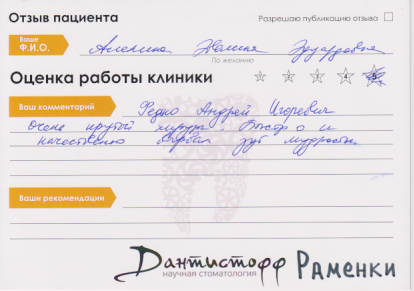 Отзыв пациента
Разрешаю публикацию отзыва
Ваше Ф.И.О.
Алекина Жанна Эдуардовна
По желанию
Оценка работы клиники
1 2 3 4 5
Ваш комментарий
Редко Андрей Игоревич
Очень крутой хирург. Быстро и
качественно удалил зуб мудрости
Ваши рекомендации
Дантистофф Раменки
научная стоматология